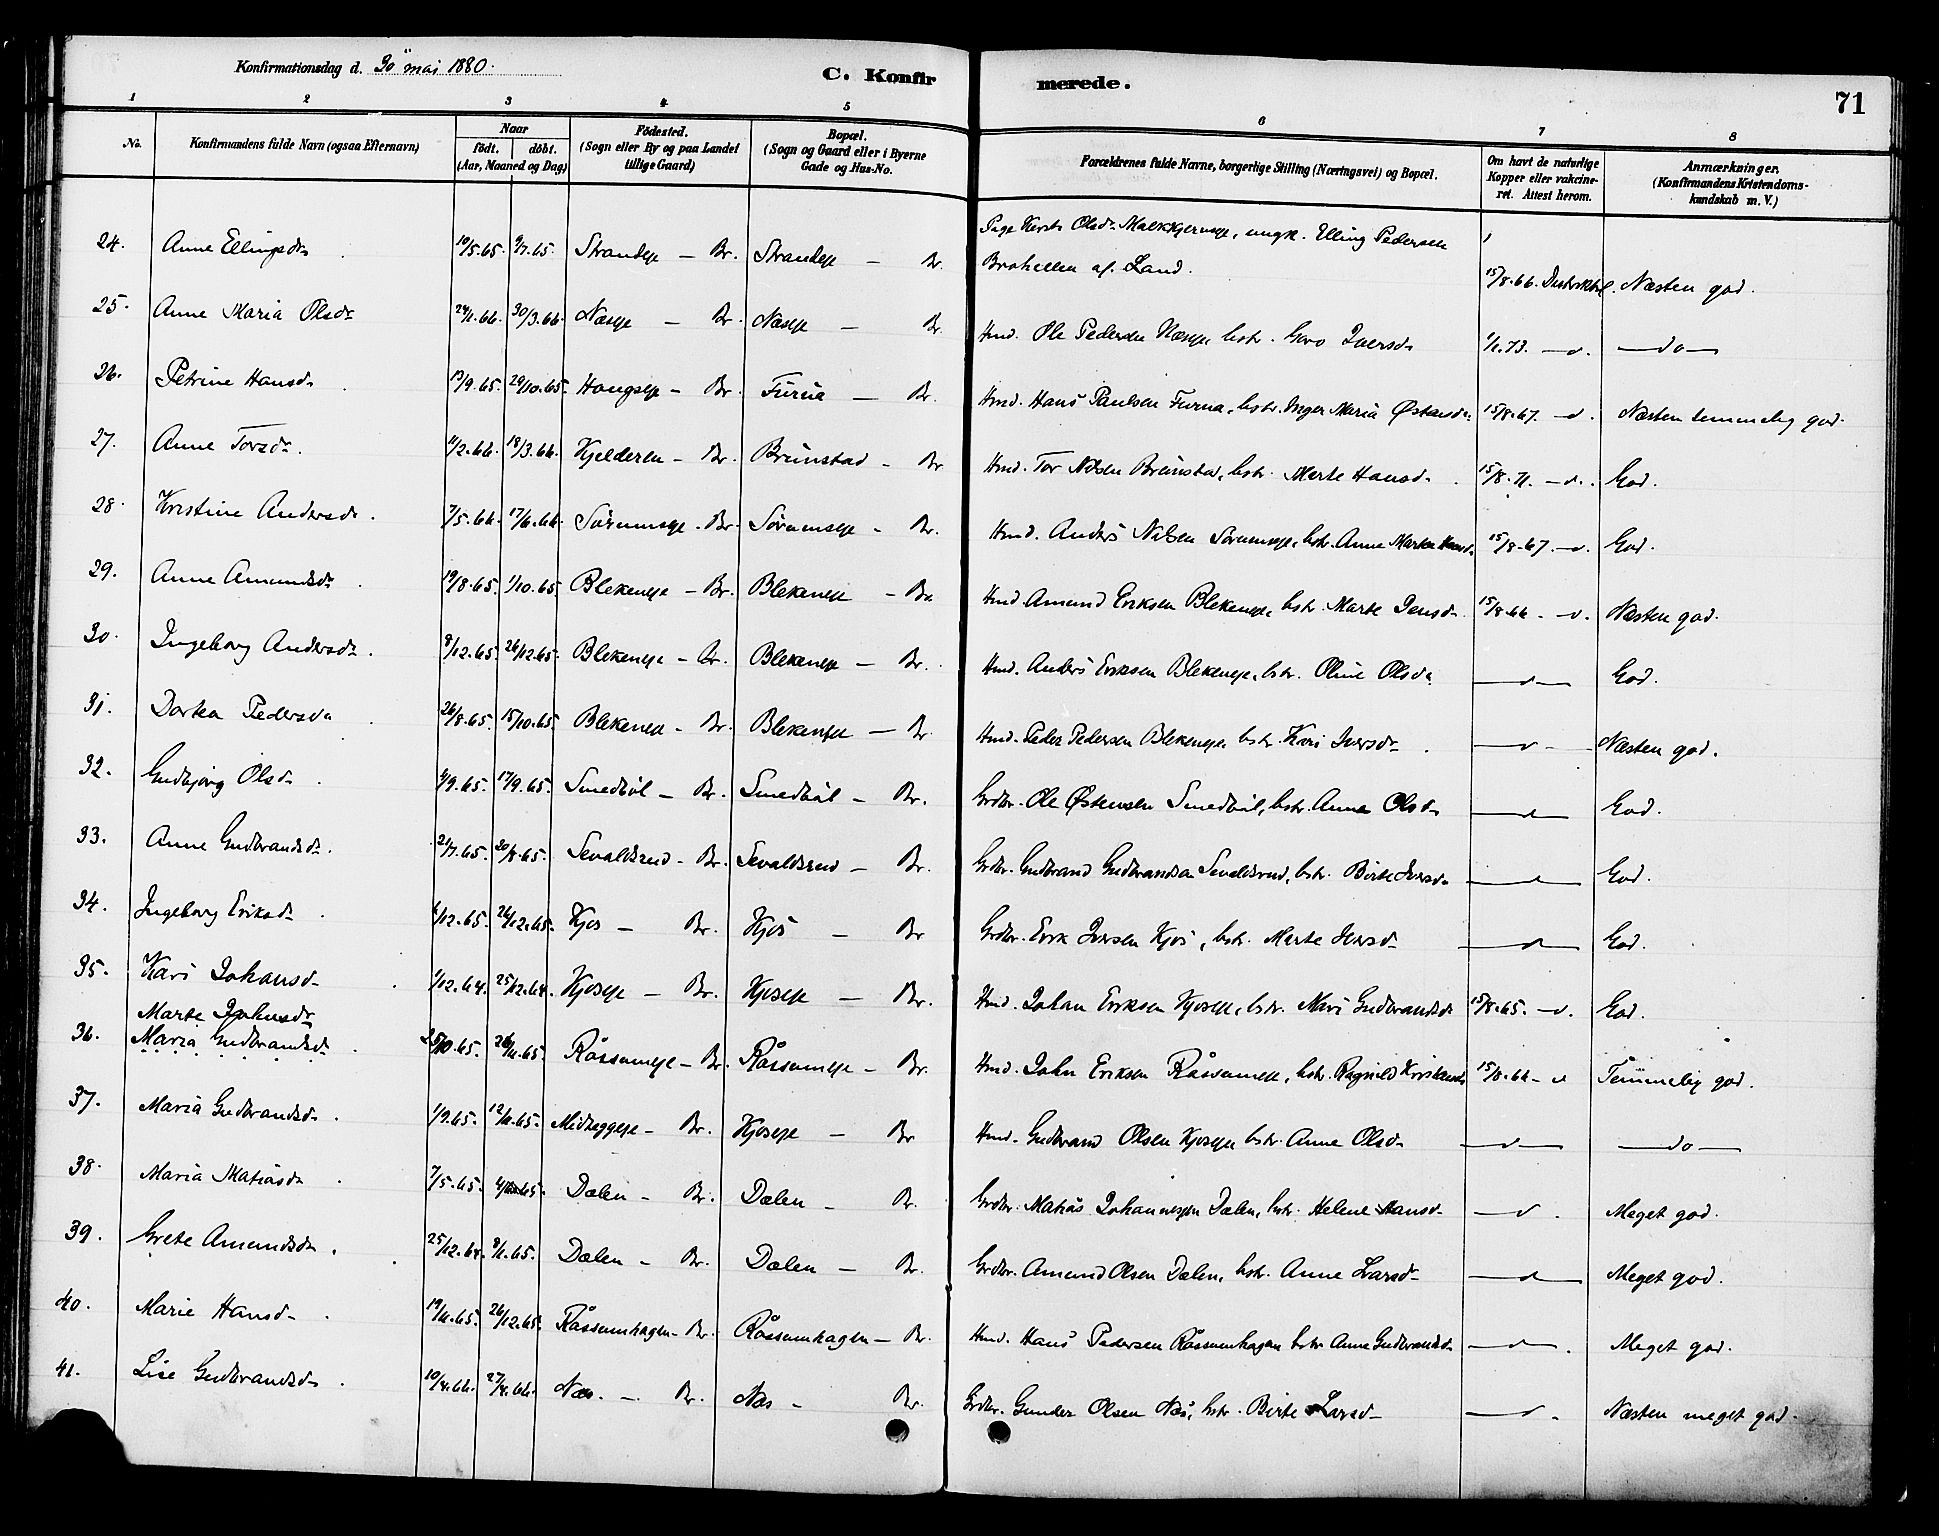 Konfirmationsdag d. 30 mai 1880.
C. Konfirmerede.
71
1 2 3 4 5 6 7 8
No. Konfirmandens fulde Navn (ogsaa Efternavn) Naar födt. döbt. (Aar, Maaned og Dag) Födested. (Sogn eller By og paa Landet tillige Gaard) Bopæl. (Sogn og Gaard eller i Byerne Gade og Hus-No. Forældrenes fulde Navne, borgerlige Stilling (Næringsvei) og Bopæl. Om havt de naturlige Kopper eller vakcineret. Attest herom. Anmærkninger. (Konfirmandens Kristendomskundskab m. V.)
24. Anne Ellingsdr 19/5.65. 9/7.65. Strandeje — Br. Strandeje — Br. Pige Olsdr ungk. Elling Pedersen
af Land. 15/8.66. Næsten god.
25. Anne Maria Olsdr 30/3.66. Næseje — Br. Næseje — Br. Hmd. Ole Pedersen Næseje, hstr. Iversdr —v. —do—
26. Petrine Hansdr 13/9.65. 29/10.65. Haugseje — Br. Furua — Br. Hmd. Hans Paulsen Furua, hstr. Inger Maria Østensdr 15/8.67. —v. Næsten temmelig god.
27. Anne Torsdr. 11/2.66. 18/3.66. Kjelderen — Br. Brunstad — Br Hmd. Tor Nilsen Brunstad, hstr. Marte Hansdr. 15/8.71. —v. God.
28. Kristine Andersdr. 7/5.66. 17/6.66. Sørumseje — Br. Sørumseje — Br. Hmd. Anders Nilsen Sørumseje, hstr. Anne Marte 15/8.67. —v. God.
29. Anne Amundsdr. 19/8.65. 1/10.65. Blekeneje — Br. Blekeneje — Br. Hmd. Amund Eriksen Blekeneje, hstr. Marte Jensdr. 15/8.66. —v. Næsten god.
30. Ingeborg Andersdr. 8/12.65. 26/12.65. Blekeneje — Br. Blekeneje — Br. Hmd. Anders Eriksen Blekeneje, hstr. Oline Olsdr. —v— God.
31. Dortea Pedersdr 26/8.65. 15/10.65. Blekeneje — Br. Blekeneje — Br. Hmd. Peder Pedersen Blekeneje, hstr. Kari Iversdr. —v— Næsten god.
32. Gudbjørg Olsdr. 17/9.65. Smedbøl — Br. Smedbøl — Br. Grdbr. Ole Østensen Smedbøl, hstr. Anne Olsdr —v— God.
33. Anne Gudbrandsdr. 21/7.65. 20/8.65. Sevaldsrud — Br. Sevaldsrud — Br. Grdbr. Gudbrand Gudbrandsen Sevaldsrud, hstr. Birte Iversdr —v— God.
34. Ingeborg Eriksdr. 26/12.65. Kjos — Br. Kjos — Br Grdbr. Erik Iversen Kjos, hstr. Marte Iversdr —v— God.
35. Kari Johansdr. 1/12.64. 25/12.64. Kjoseje — Br. Kjoseje — Br. Hmd. Johan Eriksen Kjoseje, hstr. Mari Gudbrandsdr 15/8.65. —v. God.
Marte Johnsdr
36. Maria Gudbrandsdr. 25/10.65. 26/11.65. Råssumeje — Br. Råssumeje — Br. Hmd. John Eriksen Råssumeje, hstr. Ragnild 15/8.66. —v Temmelig god.
37. Maria Gudbrandsdr. 1/9.65. 12/11.65. Midteggeje — Br. Kjoseje — Br Hmd. Gudbrand Olsen Kjoseje, hstr. Anne Olsdr. —v— —do—
38. Maria Matiasdr. 7/5.65. Dælen — Br. Dælen — Br. Grdbr. Matias Johannesen Dælen, hstr. Helene Hansdr —v. Meget god.
39. Grete Amundsdr. 25/12.64. Dælen — Br. Dælen — Br. Grdbr. Amund Olsen Dælen, hstr. Anne Larsdr —v— Meget god.
40. Marie Hansdr. 19/11.65. 26/12.65. Råssumhagen — Br. Råssumhagen — Br. Hmd. Hans Pedersen Råssumhagen hstr Anne Gudbrandsdr —v— Meget god.
41. Lise Gudbrandsdr. 10/4.66. 27/4.66. Næs. — Br. Næs — Br. Grdbr. Gunder Olsen Næs, hstr. Birte Larsdr —v. Næsten meget god.